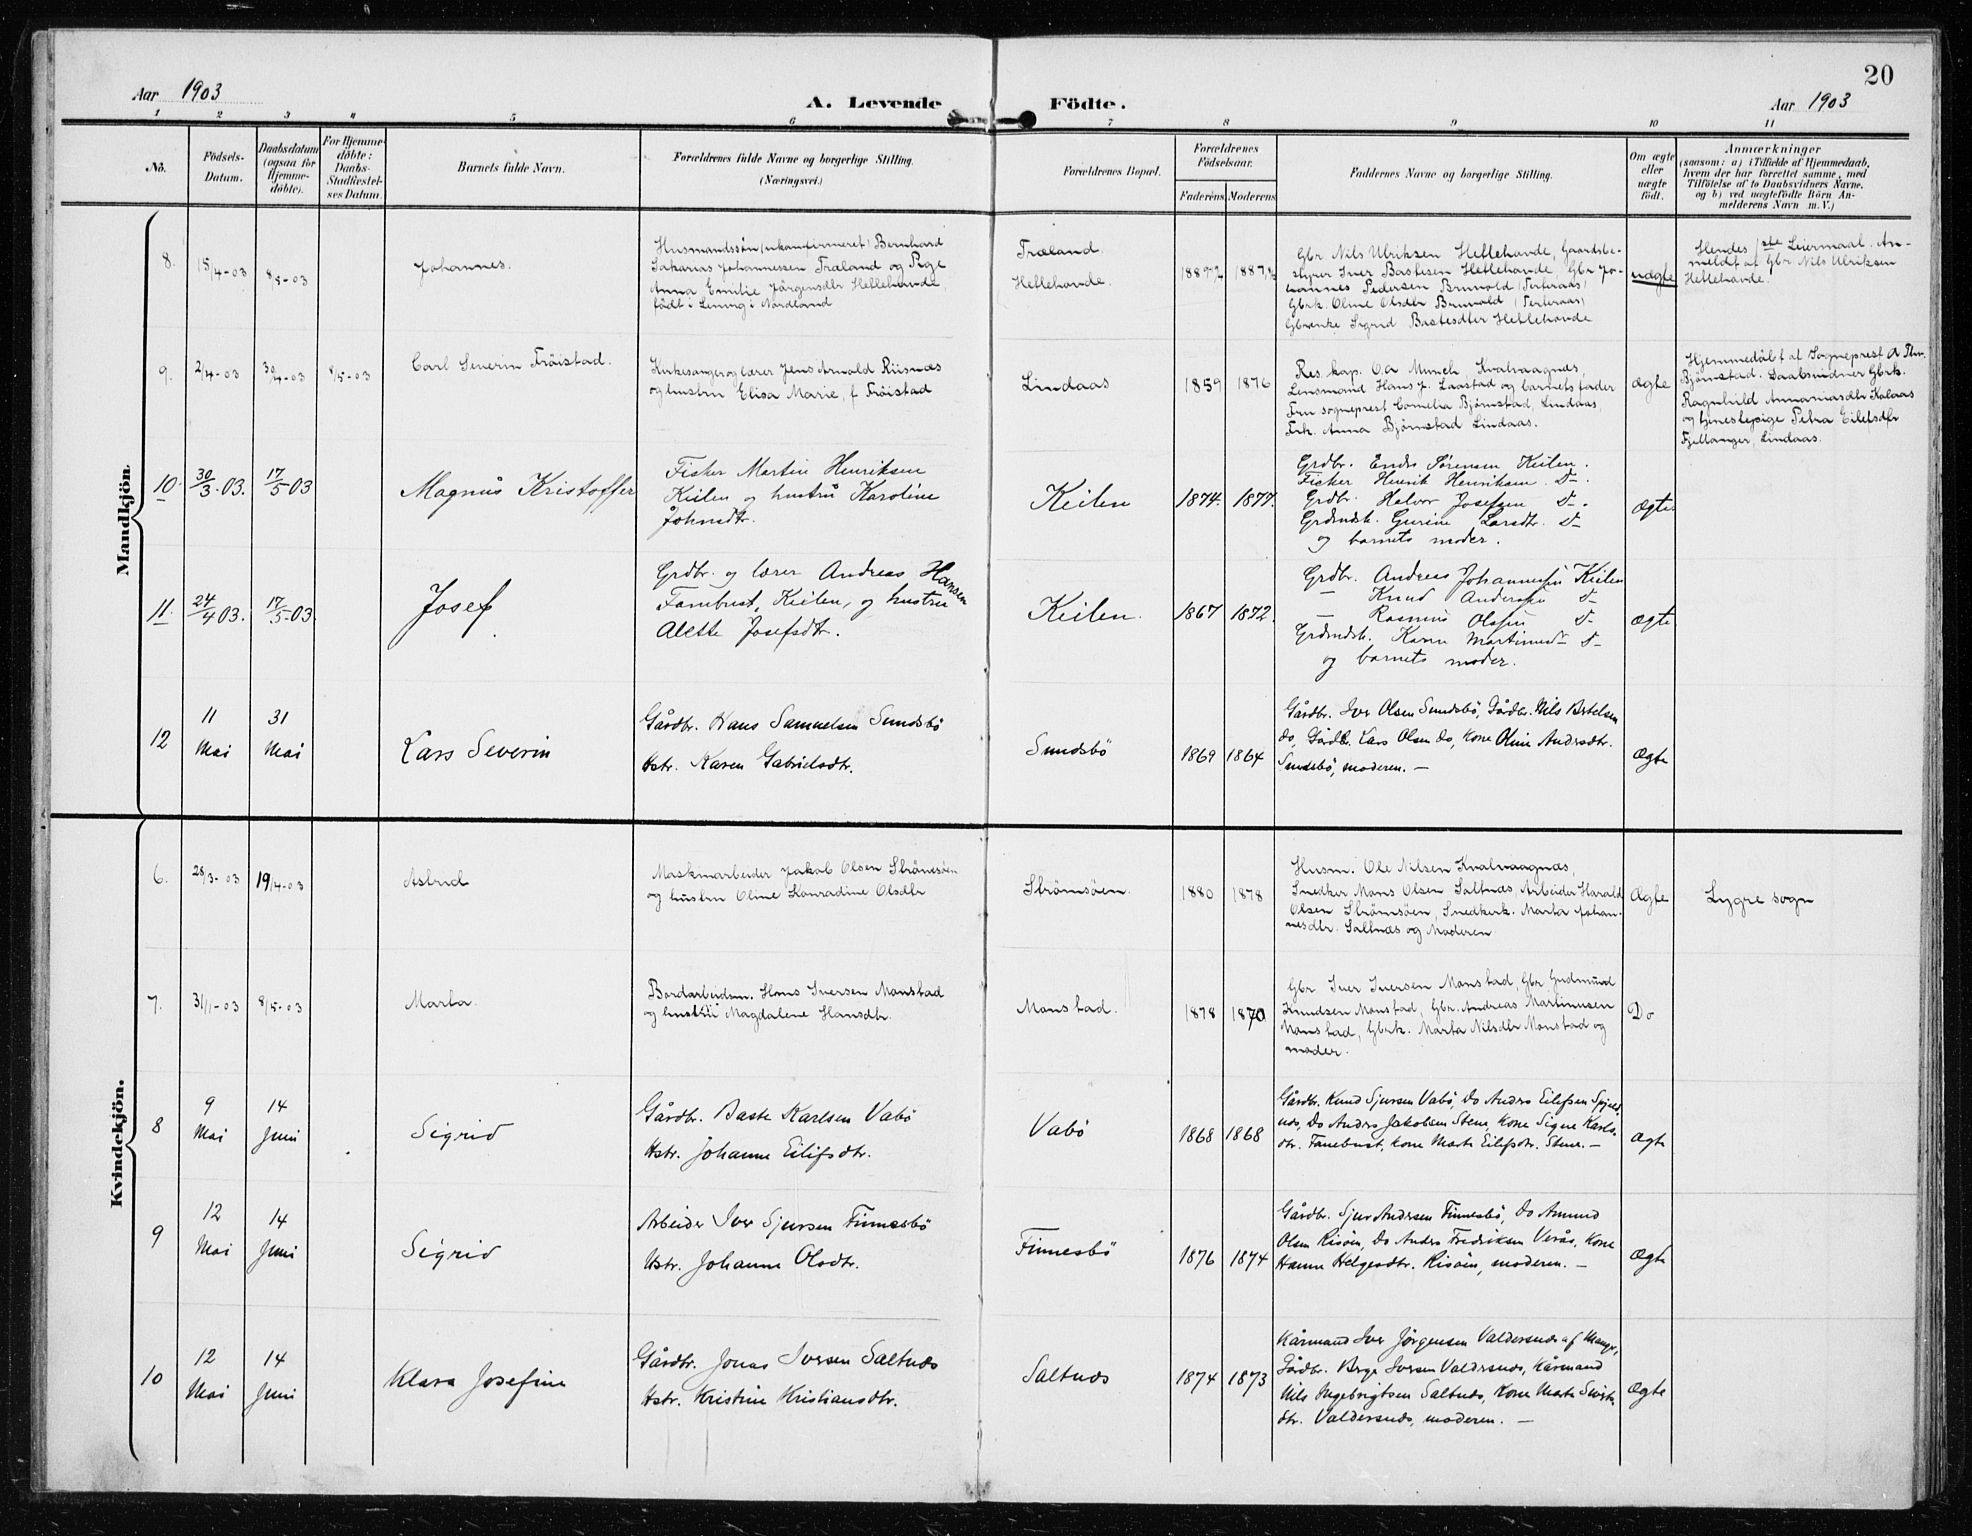 20
Aar 1903
A. Levende Födte.
Aar 1903
1 2 3 4 5 6 7 8 9 10 11
No.
Födsels-
Datum.
Daabsdatum
(ogsaa for
Hjemme-
döbte).
For Hjemme-
döbte:
Daabs-
Stadfæstel-
ses Datum.
Barnets fulde Navn.
Forældrenes fulde Navne og borgerlige Stilling.
(Næringsvei.)
Forældrenes Bopæl.
Forældrenes
Födselsaar.
Faderens Moderens
Faddernes Navne og borgerlige Stilling.
Om ægte
eller
uægte
födt.
Anmærkninger
(saasom: a) i Tilfælde af Hjemmedaab,
hvem der har forrettet samme, med
Tilföielse af to Daabsvidners Navne,
og b) ved uægtefödte Börn An-
melderens Navn m. V.)
Mandkjön
8.
15/4-03
8/5-03
Johannes.
Husmandssøn (ukonfirmeret) Bernhard
Sakarias Johannessen Træland og Pige
Anna Emilie Jørgensdtr Hetlehovde,
født i Lening i Nordland
Træland.
Hetlehovde.
Gbr Nils Ulriksen Hetlehovde, Gaardsbe-
styrer Iver Bastesen Hetlehovde, Gbr Jo-
hannes Pedersen Brunold (Terteraas)
Gbrk. Oline Olsdtr Brunold (Terteraas)
Gbrenke Sigrid Bastesdtr Hetlehovde
uægte
Hendes 1ste Leiermaal. An-
meldt af Gbr Nils Ulriksen
Hetlehovde.
9.
2/4-03
30/4-03
8/5-03
Carl Severin Frøistad.
Kirkesanger og lærer Jens Arnold Riisnæs
og hustru Elisa Marie, f Frøistad
Lindaas
1859
1876
Res. kap. O.A Munch, Kvalvaagnæs,
Lensmand Hans J. Laastad og barnets fader
Fru sogneprest Cornelia Bjørnstad, Lindaas,
Frk. Anna Bjørnstad Lindaas.
ægte
Hjemmedøbt af Sogneprest
Bjørnstad. Daabsvidner Gbrk.
Ragnhild Annaniasdtr Kolaas
og tjenestepige Petra Eilefsdtr
Fjellanger, Lindaas.
10.
30/3.03.
17/5 03
Magnus Kristoffer
Fisker Martin Henriksen
Keilen og hustru Karoline
Johnsdtr.
Keilen
1874.
1877.
Grdbr. Endre Sørensen Keilen.
Fisker Henrik Henriksen D-.
Grdbr. Halvor Josefsen D-.
Grdmdsk. Gurine Larsdtr. D-
og barnets moder.
Ægte
11.
24/4 03.
17/5-03.
Josef
Grdbr. og lærer Andreas Hansen
Fanebust, Keilen, og hustru
Alette Josefsdtr.
Keilen.
1867
1872.
Grdbr. Andreas Johannesen Keilen
— Knud Andersen D-
— Rasmus Olsen D-
Grdmdsk. Karen Martinusd- D-
og barnets moder.
Ægte
12
11
Mai
31
Mai
Lars Severin
Gårdbr. Hans Samuelsen Sundsbø
Hstr. Karen Gabrielsdtr.
Sundsbø
1869
1864
Gårdbr. Iver Olsen Sundsbø, Gårdbr. Nils Bertelsen
do, Gårdbr. Lars Olsen do, kone Oline Andersdtr.
Sundsbø, moderen. —
Ægte
Kvindekjön.
6.
28/3-03
19/4-03
Astrid
Maskinarbeider Jakob Olsen Strømsøen
og hustru Oline Konradine Olsdtr
Strømsøen.
1880
1878
Husm. Ole Nilsen Kvalvaagnæs,
Snedker Mons Olsen Saltnæs, Arbeider Harald
Olsen Strømsøen, Snedkerk. Marta Johan-
nesdtr. Saltnæs og Moderen
Ægte
Lygre sogn
7.
31/1-03
8/5-03
Marta.
Bordarbeidsm. Hans Iversen Monstad
og hustru Magdalene Hansdtr.
Monstad.
1878
1870
Gbr Iver Iversen Monstad, Gbr Gudmund
Knudsen Monstad, Gbr. Andreas Martinusen
Monstad, Gbrk. Marta Nilsdtr Monstad og
moder.
Do
8
9
Mai
14
Juni
Sigrid
Gårdbr. Baste Karlsen Vabø
Hstr. Johanne Eilifsdtr.
Vabø
1868
1868
Gårdbr. Knud Sjursen Vabø, Do Anders Eilefsen Spjeld-
næs, Do Anders Jakobsen Stene, kone Signe Karls-
dtr. Fanebust, kone Marta Eilifsdtr. Stene. —
Ægte
9
12
Mai
14
Juni
Sigrid
Arbeider Iver Sjursen Finnesbø
Hstr. Johanne Olsdtr.
Finnesbø
1876
1874
Gårdbr. Sjur Andersen Finnesbø, Do Amund
Olsen Risøen, Do Anders Fredriksen Verås, kone
Hanne Helgesdtr. Risøen, moderen. —
Ægte
10
12
Mai
14
Juni
Klara Josefine
Gårdbr. Jonas Iversen Saltnæs
Hstr. Kristine Kristiansdtr.
Saltnæs
1874
1873
Kårmand Iver Jørgensen Valdersnæs af Manger,
Gårdbr. Børge Iversen Valdersnæs, Kårmand
Nils Ingebrigtsen Saltnæs, kone Marta
dtr. Valdersnæs, moderen. —
Ægte